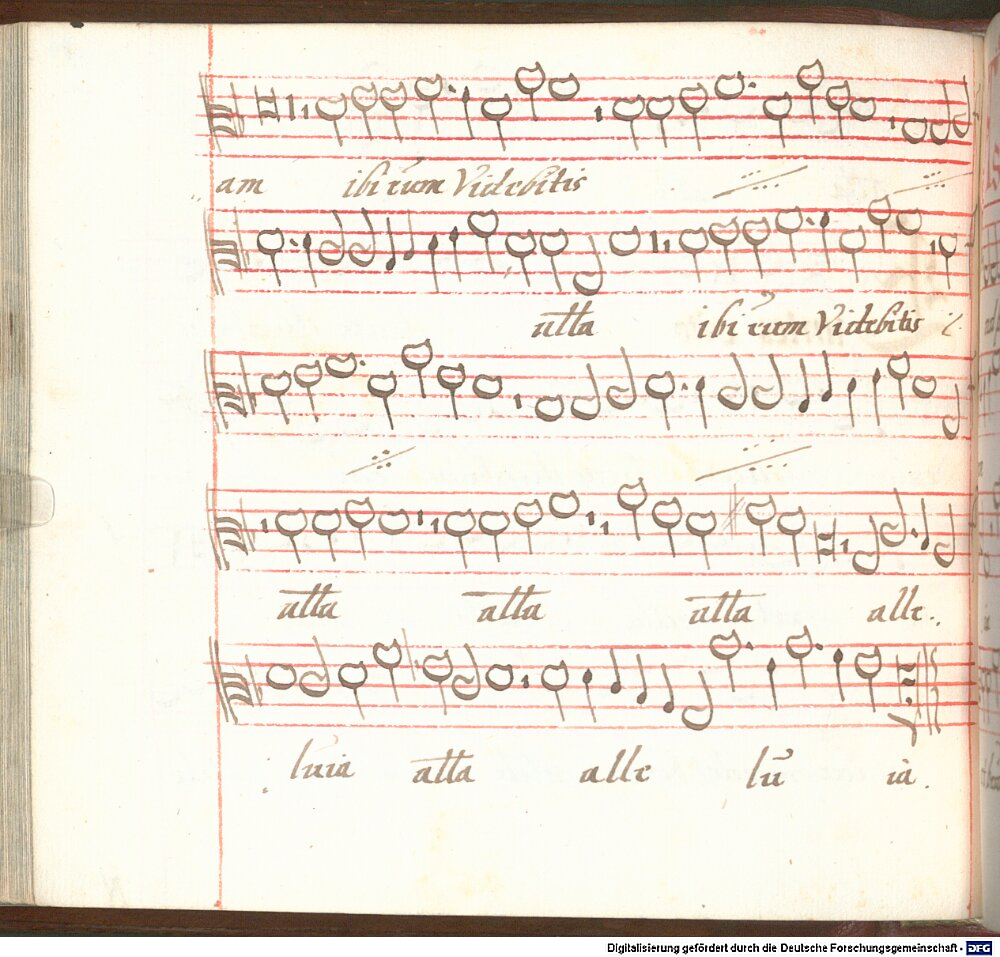 am ibi eum Videbitis
alla ibi eum Videbitis
alla alla alla alle..
luia alla alle lu ia.
Digitalisierung gefördert durch die Deutsche Forschungsgemeinschaft - DFG